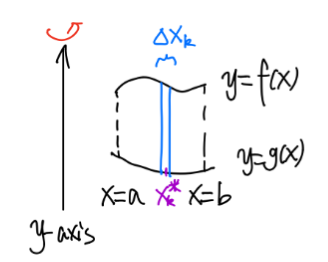 Δxₖ
y=f(x)
y=g(x)
x=a xₖ* x=b
y-axis